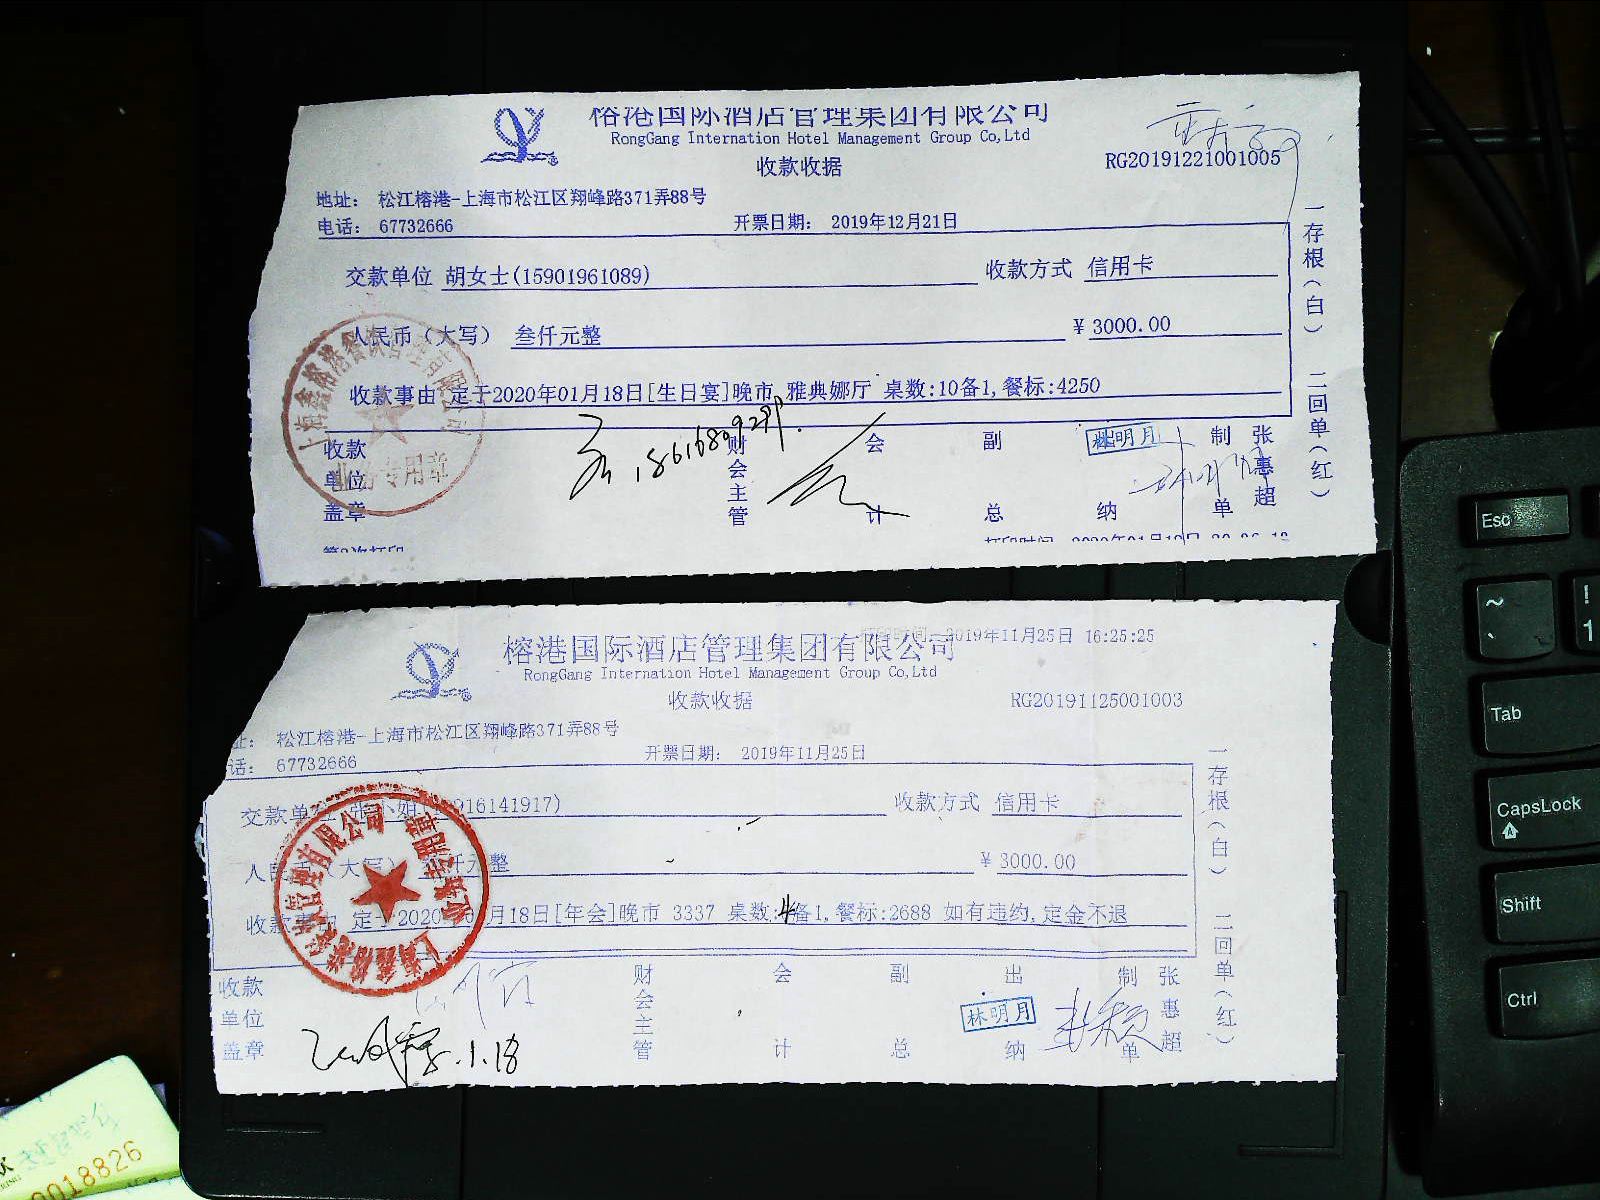 榕港国际酒店管理集团有限公司
RongGang Internation Hotel Management Group Co,Ltd
收款收据
RG20191221001005
地址： 松江榕港-上海市松江区翔峰路371弄88号
电话： 67732666
开票日期： 2019年12月21日
交款单位 胡女士(15901961089)
收款方式 信用卡
人民币（大写） 叁仟元整
¥ 3000.00
收款事由 定于2020年01月18日[生日宴]晚市 雅典娜厅 桌数:10备1,餐标:4250
收款单位盖章
财会主管
会计
副总
纳
林明月
制单
张惠超
一存根（白） 二回单（红）
业务专用章
打印时间
榕港国际酒店管理集团有限公司
2019年11月25日 16:25:25
RongGang Internation Hotel Management Group Co,Ltd
收款收据
RG20191125001003
址： 松江榕港-上海市松江区翔峰路371弄88号
话： 67732666
开票日期： 2019年11月25日
交款单 张小姐 916141917)
收款方式 信用卡
人民币（大写） 仟元整
¥ 3000.00
收款事由 定于2020 月18日[年会]晚市 3337 桌数:4备1,餐标:2688 如有违约,定金不退
收款单位盖章
财会主管
会计
副总
出纳
林明月
制单
张惠超
1.18
一存根（白） 二回单（红）
0018826
Esc
~
`
!
1
Tab
CapsLock
Shift
Ctrl